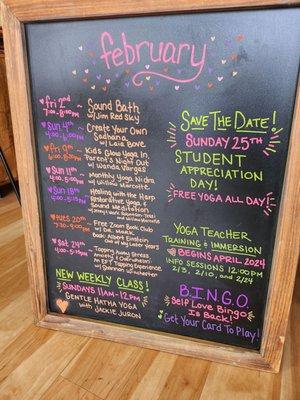 february
fri 2nd ~ Sound Bath
7:00-8:15pm w/ Jim Red Sky
sun 4th ~ Create Your Own
4:00-6:00pm Sadhana
w/ Laia Bove
Fri 9th ~ Kids Glow Yoga In,
6:00-8:30pm Parent's Night Out
w/ Wanda Vargas
Sun 11th ~ Monthly Yoga Nidra
w/ Liliana Marcotte
Sun 18th ~ Healing with the Harp
Restorative Yoga &
Sound Healing
tues 20th ~ Free Zoom Book Club
w/ Dr. Mark
Book: Albert Einstein
Out of My Later Years
sat 24th ~ Tapping Away Stress
Anxiety & Overwhelm
An EFT Tapping Experience
NEW WEEKLY CLASS
SUNDAYS 11AM-12PM
GENTLE HATHA YOGA
with JACKIE JURON
SAVE THE DATE!
SUNDAY 25TH
STUDENT
APPRECIATION
DAY!
FREE YOGA ALL DAY!
YOGA TEACHER
TRAINING & IMMERSION
BEGINS APRIL 2024
INFO SESSIONS 12:00PM
2/3, 2/10, 2/24
B.I.N.G.O.
Self Love Bingo
Is Back!
Get Your Card To Play!